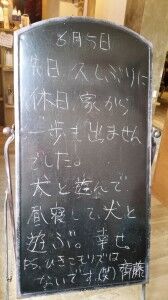 6月5日
先日 久しぶりに
休日 家から
一歩も出ません
でした。
犬と遊んで
昼寝して、犬と
遊ぶ。幸せ
P.S. ひきこもりでは
ないです(笑) 齊藤